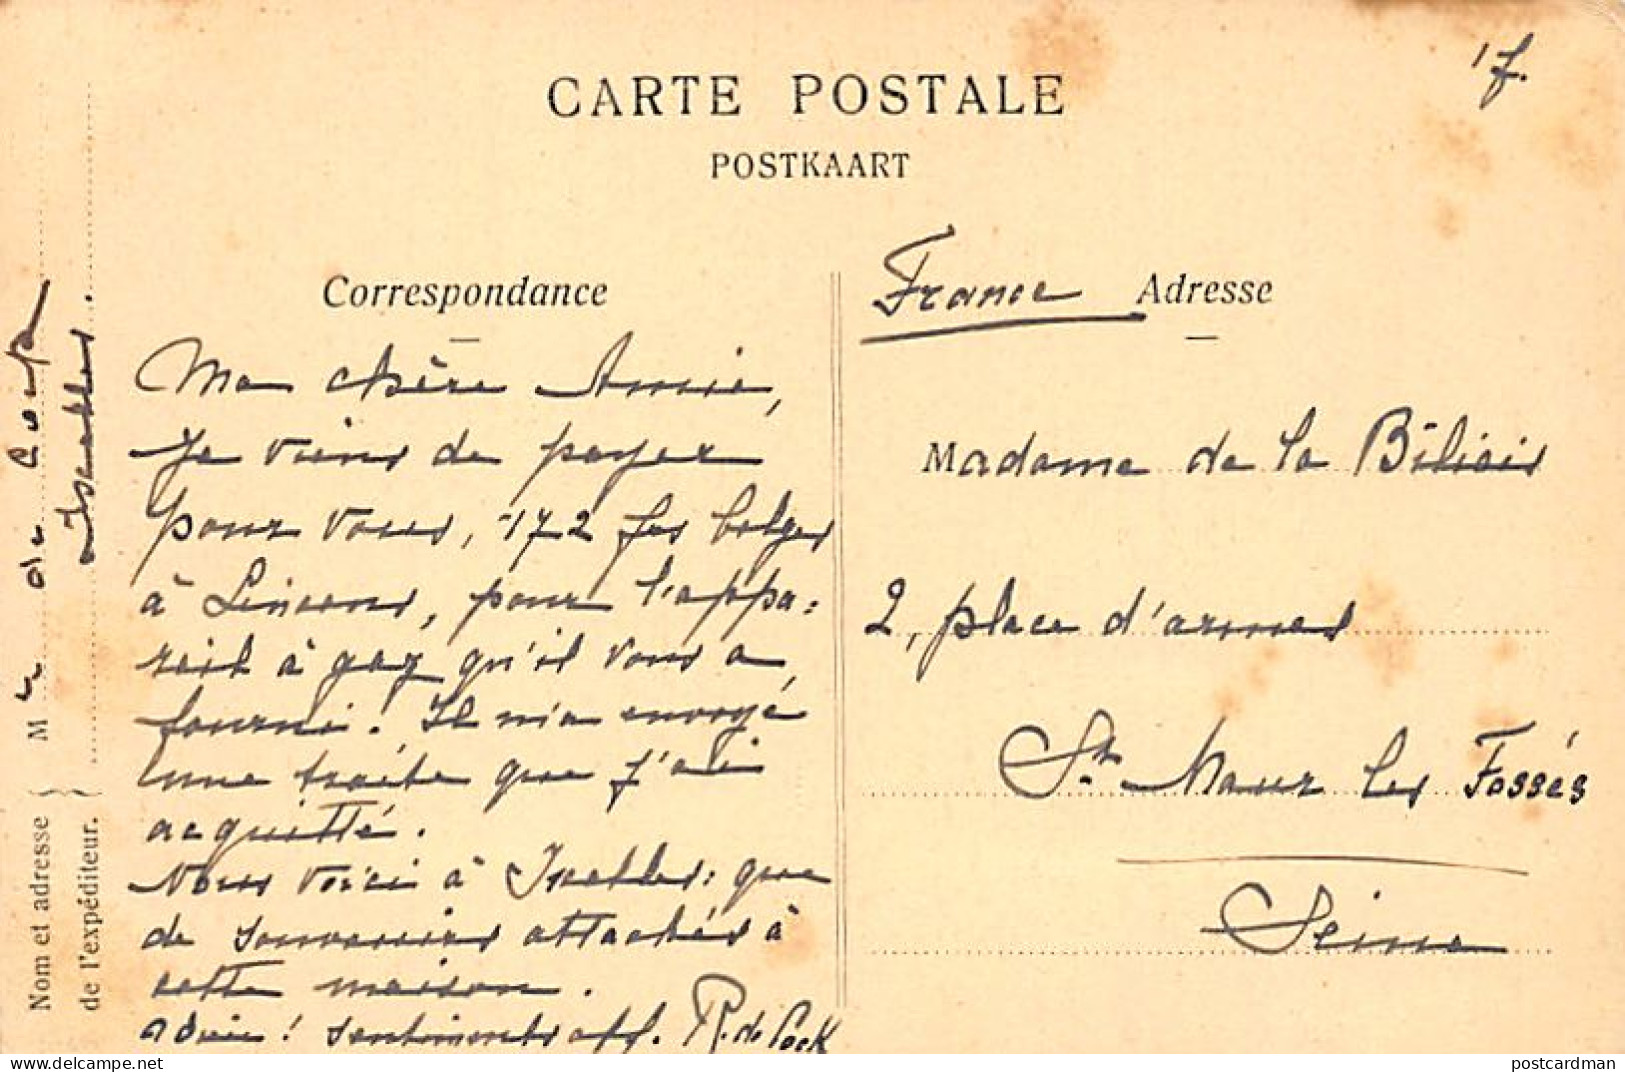 17.
CARTE POSTALE
POSTKAART
Correspondance
Ma chère Amie,
Je viens de payer
pour vous, 172 frs belges
à Linsens, pour l'appa=
reil à gaz qu'il vous a
fourni. Il m'a envoyé
une traite que j'ai
acquitté.
Nous voici à Ixelles: que
de souvenirs attachés à
cette maison.
adieu! sentiments aff. R. de Cock
France Adresse
Madame de la
2, place d'armes
St. Maur les Fossés
Seine
Nom et adresse
de l'expéditeur.
M de Cock
Ixelles.
postcardman